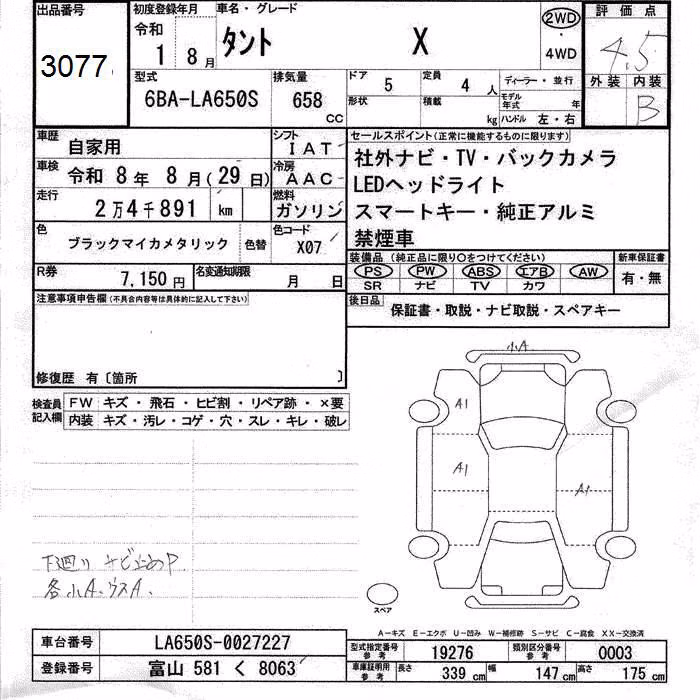 出品番号 初度登録年月 車名・グレード 2WD 評価点
3077 令和 1 8月 タント X ・ 4WD 4.5
型式 排気量 ドア 定員 ディーラー・並行 外装 内装
6BA-LA650S 658 CC 5 4 人 B
形状 積載 kg モデル年式 年
ハンドル 左・右
車歴 自家用 シフト IAT
車検 令和 8年 8月(29日) 冷房 AAC
走行 2万4千891 km 燃料 ガソリン
色 ブラックマイカメタリック 色替 色コード X07
R券 7,150円 名変通知期限 月 日
セールスポイント(正常に機能するものに限ります)
社外ナビ・TV・バックカメラ
LEDヘッドライト
スマートキー・純正アルミ
禁煙車
装備品 (純正品に限り○をつけてください) 新車保証書
PS PW ABS エアB AW 有・無
SR ナビ TV カワ
後日品 保証書・取説・ナビ取説・スペアキー
注意事項申告欄(不具合内容等は具体的に記入して下さい)
修復歴 有〔箇所 〕
検査員記入欄 FW キズ・飛石・ヒビ割・リペア跡・×要
内装 キズ・汚レ・コゲ・穴・スレ・キレ・破レ
小A
A1
A1
A1
下廻り サビ止めP
各小A、ウスA、
スペア
A-キズ E-エクボ U-凹み W-補修跡 S-サビ C-腐食 XX-交換済
車台番号 LA650S-0027227
登録番号 富山 581 く 8063
型式指定番号 参考 19276 類別区分番号 参考 0003
車庫証明用 参考 長さ 339 cm 幅 147 cm 高さ 175 cm